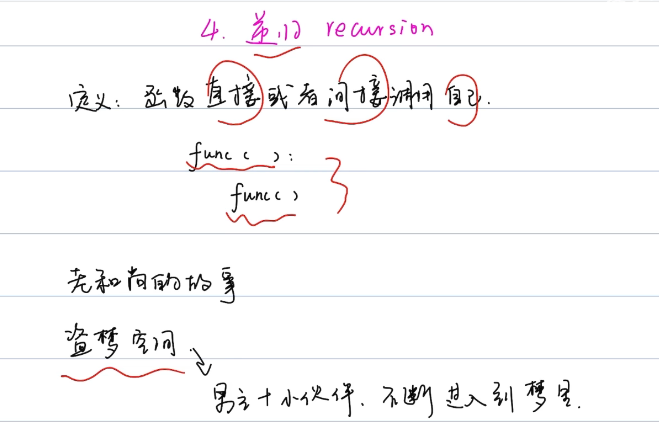 4. 递归 recursion
定义: 函数直接或者间接调用自己.
func( ):
func()
老和尚的故事
盗梦空间
男主+小伙伴、不断进入到梦里.